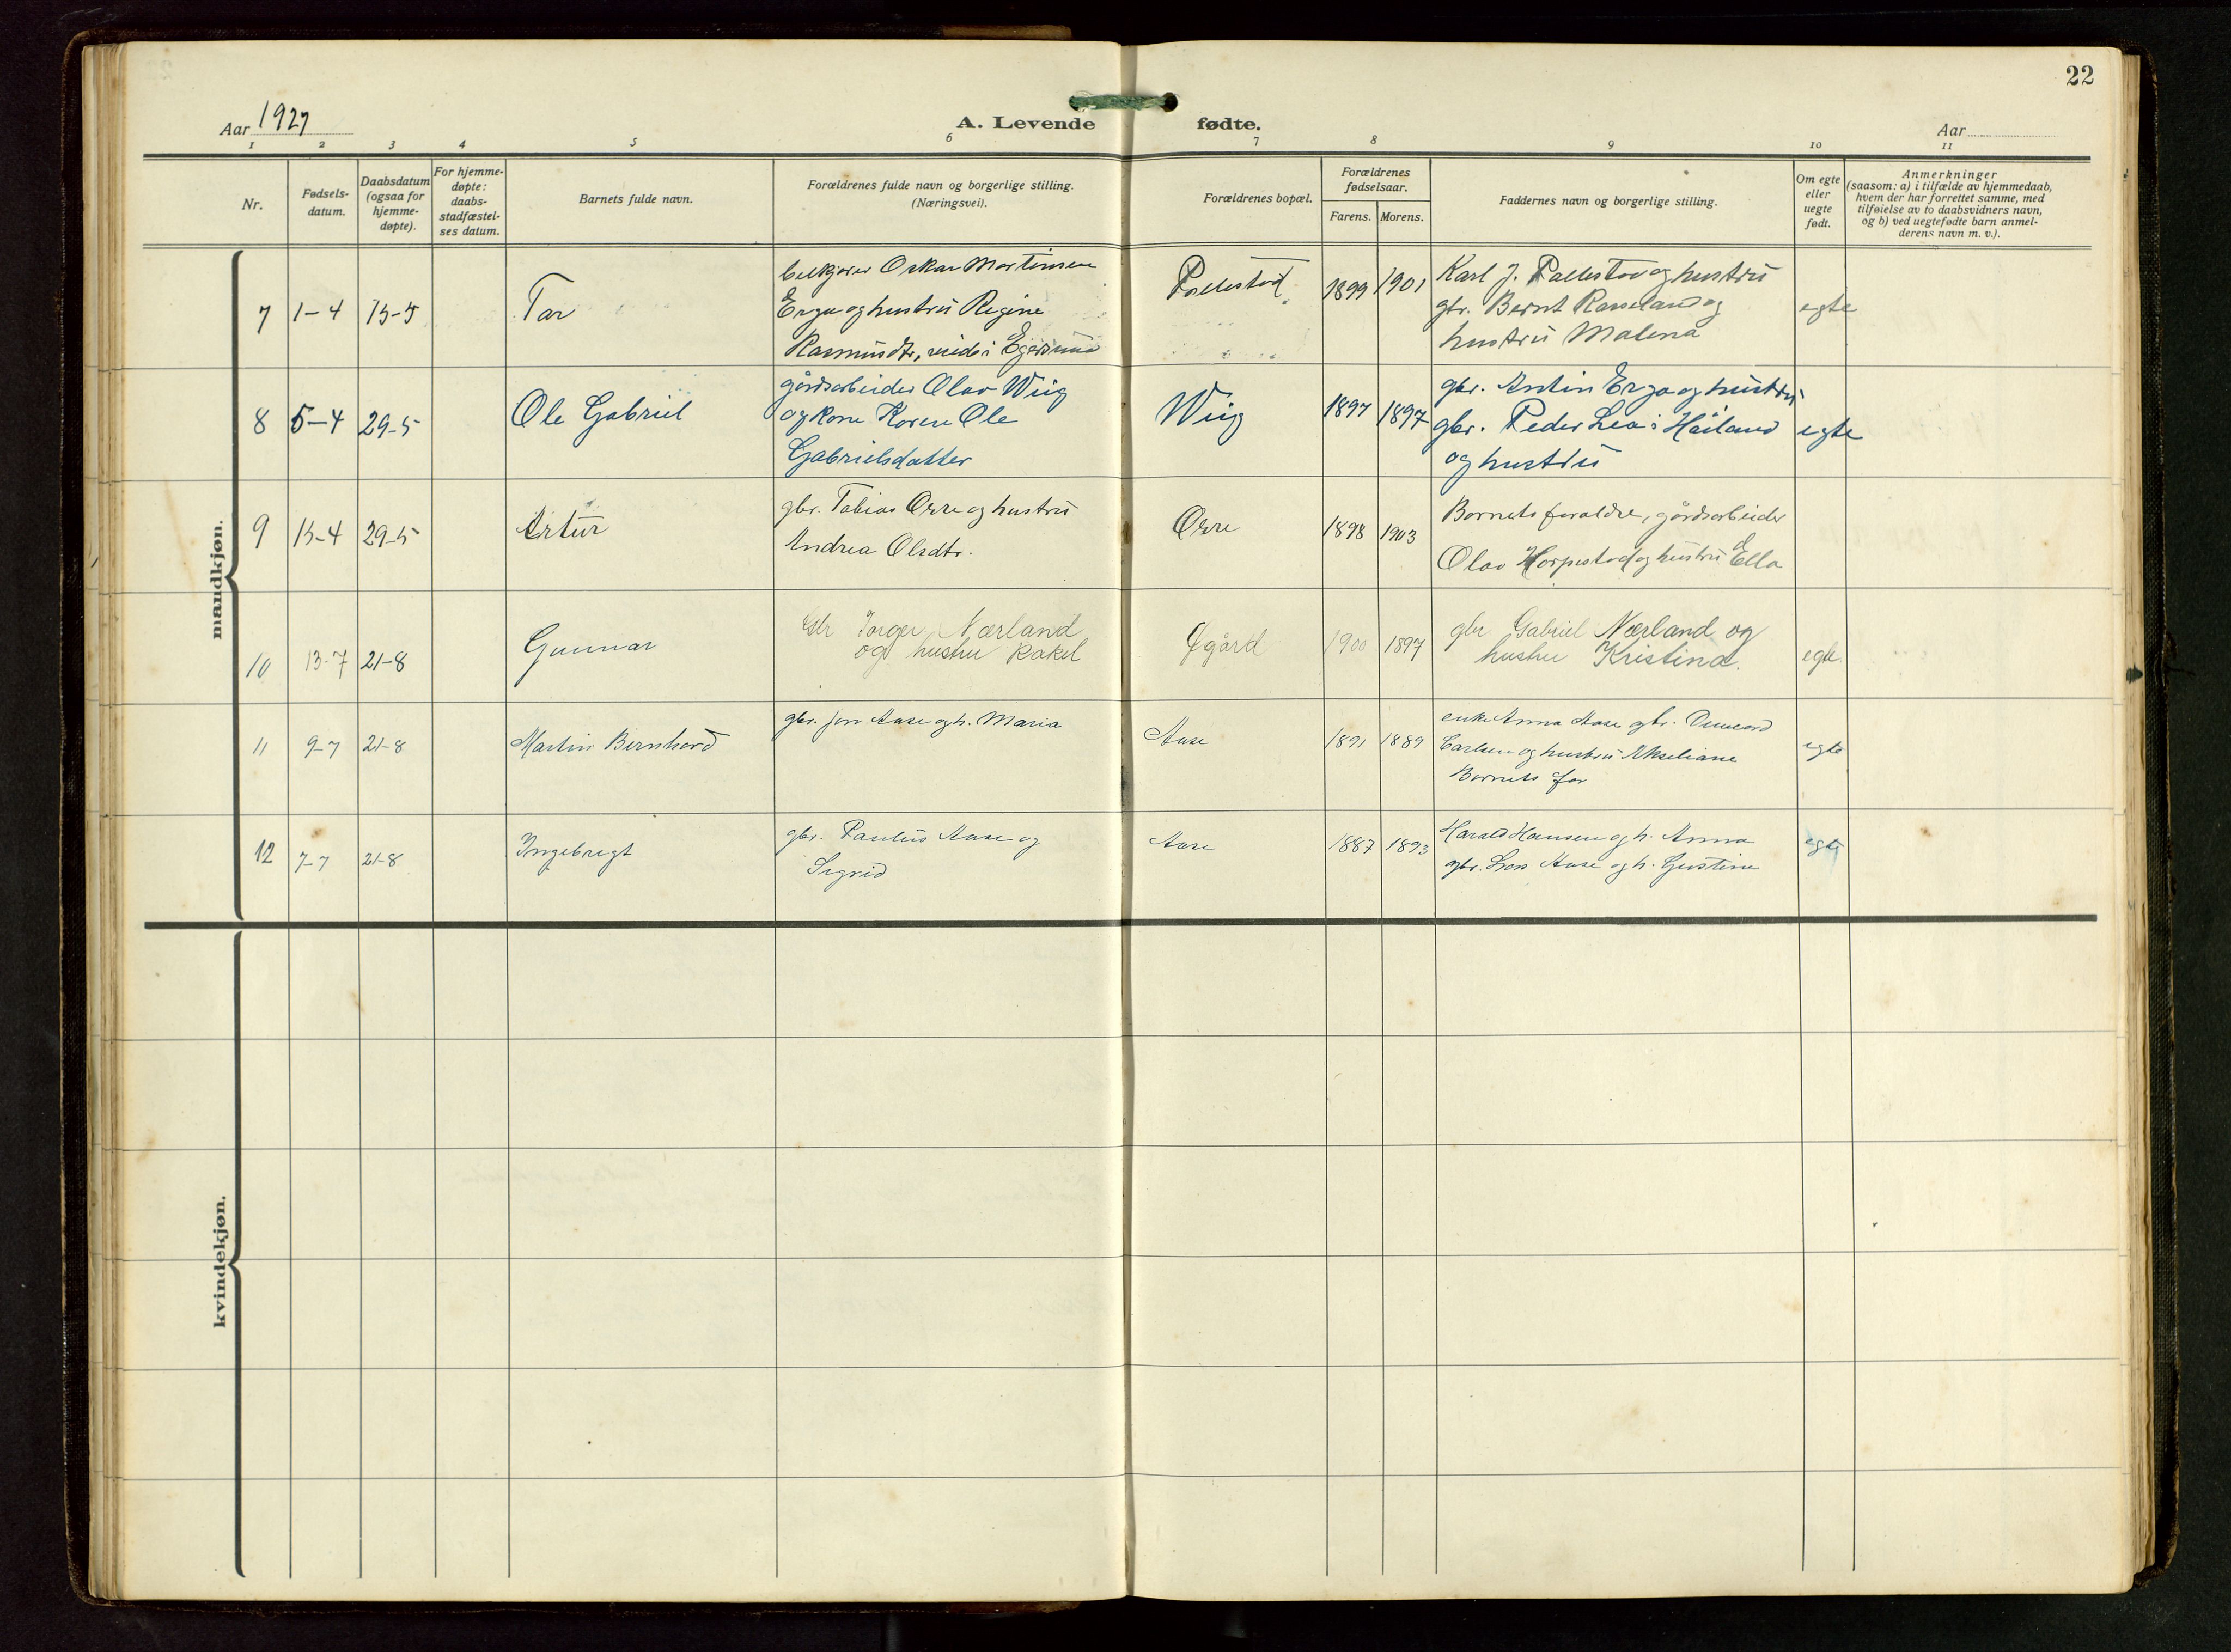 22
Aar 1927
A. Levende fødte.
Aar
1 2 3 4 5 6 7 8 9 10 11
Nr.
Fødsels-
datum.
Daabsdatum
(ogsaa for
hjemme-
døpte).
For hjemme-
døpte:
daabs-
stadfæstel-
ses datum.
Barnets fulde navn.
Forældrenes fulde navn og borgerlige stilling.
(Næringsvei).
Forældrenes bopæl.
Forældrenes
fødselsaar.
Farens. Morens.
Faddernes navn og borgerlige stilling.
Om egte
eller
uegte
født.
Anmerkninger
(saasom: a) i tilfælde av hjemmedaab,
hvem der har forrettet samme, med
tilføielse av to daabsvidners navn,
og b) ved uegtefødte barn anmel-
derens navn m. v.).
mandkjøn.
7 1-4 15-5 Tor
Oskar Martinsen
Erga og hustru Regine
Rasmusdtr, Egersund
Pollestad 1899 1901
Karl J. Pollestad og hustru
gbr. Bernt Rosseland og
hustru Malena
egte
8 5-4 29-5 Ole Gabriel
gårdsarbeider Olav Wiig
og kone Karen Ole
Gabrielsdatter
Wiig 1897 1897
gbr. Erga og hustru
gbr. Peder Lea i Høiland
og hustru
egte
9 15-4 29-5 Artur
gbr. Tobias Orre og hustru
Andrea Olsdtr.
Orre 1898 1903
Barnets foreldre, gårdsarbeider
Olav Horpestad og hustru Ella
10 13-7 21-8 Gunnar
gbr Torger Nærland
og hustru Rakel
Øgård 1900 1897
gbr Gabriel Nærland og
hustru Kristina.
egte.
11 9-7 21-8 Martin Bernhard
gbr. Jon Aase og h. Maria
Aase 1891 1889
enke Anna Aase gbr.
Carlsen og hustru Akseliane
Barnets far
egte
12 7-7 21-8 Ingebregt
gbr. Paulus Aase og
Sigrid
Aase 1887 1893
Harald Hansen og h. Anna
gbr. Lars Aase og h. Gustine
egte
kvindekjøn.